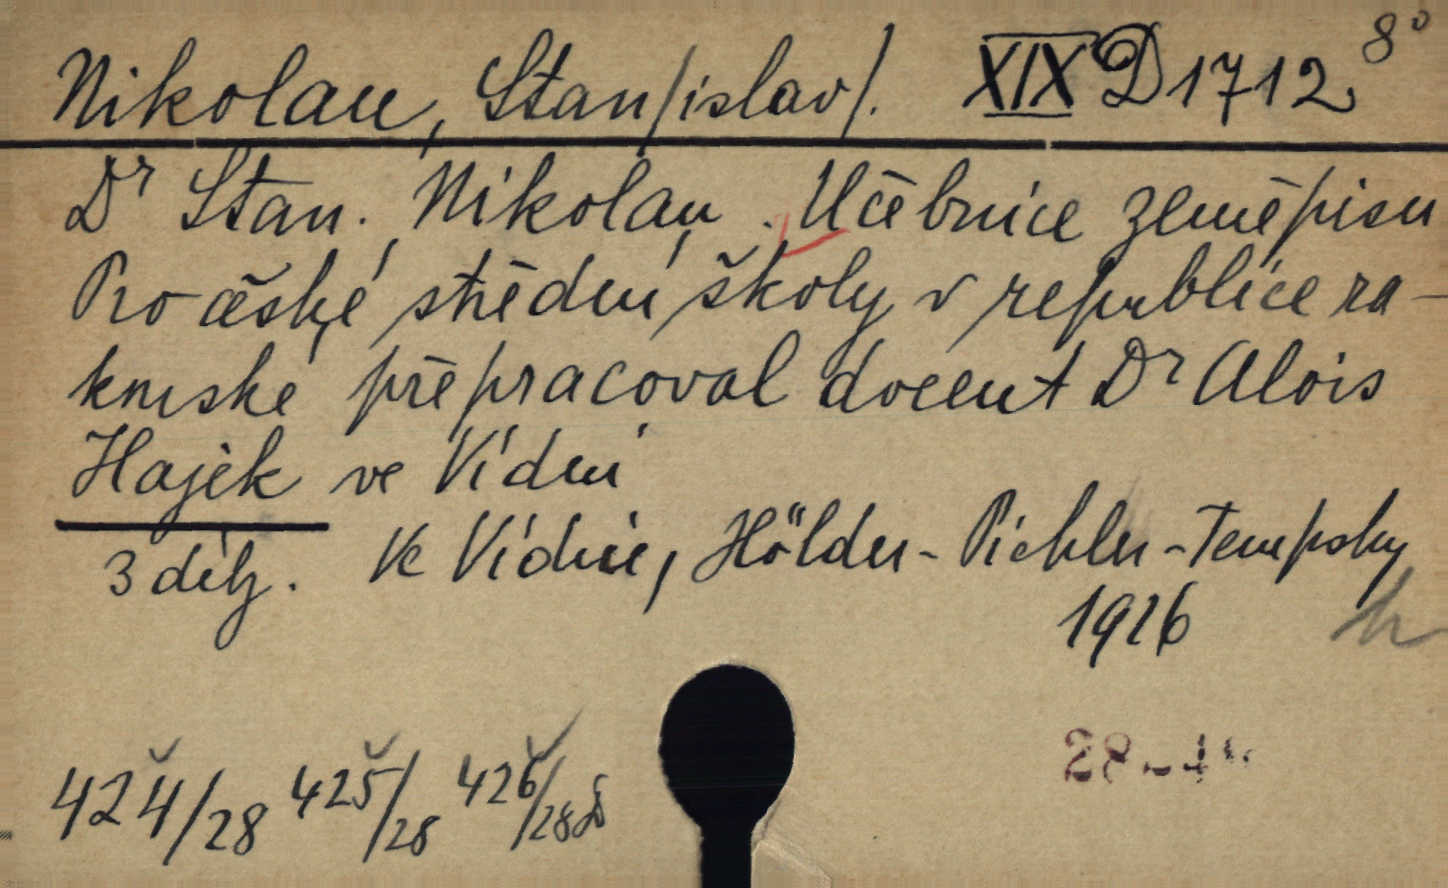 Nikolau, Stan/islav/. XIX D 1712 8°
Dr Stan. Nikolau. Učebnice zeměpisu
Pro české střední školy v republice ra-
kouské přepracoval docent Dr Alois
Hajék ve Vídni
3 díly. Ve Vídni, Hölder-Pichler-Tempsky
1926
424/28 425/28 426/28
28-4